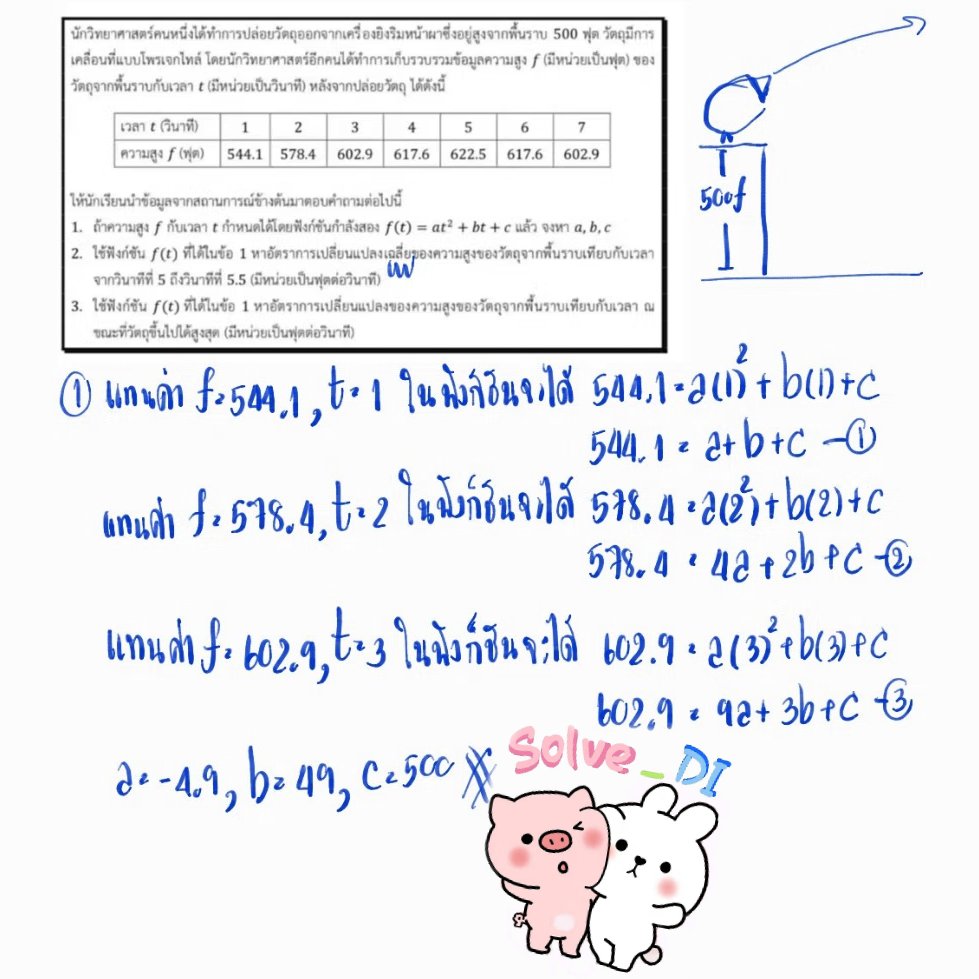 นักวิทยาศาสตร์คนหนึ่งได้ทำการปล่อยวัตถุออกจากเครื่องยิงริมหน้าผาซึ่งอยู่สูงจากพื้นราบ 500 ฟุต วัตถุมีการ
เคลื่อนที่แบบโพรเจกไทล์ โดยนักวิทยาศาสตร์อีกคนได้ทำการเก็บรวบรวมข้อมูลความสูง f (มีหน่วยเป็นฟุต) ของ
วัตถุจากพื้นราบกับเวลา t (มีหน่วยเป็นวินาที) หลังจากปล่อยวัตถุ ได้ดังนี้
เวลา t (วินาที) 1 2 3 4 5 6 7
ความสูง f (ฟุต) 544.1 578.4 602.9 617.6 622.5 617.6 602.9
500f
ให้นักเรียนนำข้อมูลจากสถานการณ์ข้างต้นมาตอบคำถามต่อไปนี้
1. ถ้าความสูง f กับเวลา t กำหนดได้โดยฟังก์ชันกำลังสอง f(t) = at² + bt + c แล้ว จงหา a, b, c
2. ใช้ฟังก์ชัน f(t) ที่ได้ในข้อ 1 หาอัตราการเปลี่ยนแปลงเฉลี่ยของความสูงของวัตถุจากพื้นราบเทียบกับเวลา
จากวินาทีที่ 5 ถึงวินาทีที่ 5.5 (มีหน่วยเป็นฟุตต่อวินาที)
3. ใช้ฟังก์ชัน f(t) ที่ได้ในข้อ 1 หาอัตราการเปลี่ยนแปลงของความสูงของวัตถุจากพื้นราบเทียบกับเวลา ณ
ขณะที่วัตถุขึ้นไปได้สูงสุด (มีหน่วยเป็นฟุตต่อวินาที)
① แทนค่า f=544.1, t=1 ในฟังก์ชันจะได้ 544.1=a(1)²+b(1)+c
544.1=a+b+c —①
แทนค่า f=578.4, t=2 ในฟังก์ชันจะได้ 578.4=a(2²)+b(2)+c
578.4=4a+2b+c -②
แทนค่า f=602.9, t=3 ในฟังก์ชันจะได้ 602.9=a(3)²+b(3)+c
602.9=9a+3b+c -③
a=-4.9, b=49, c=500
Solve_DI